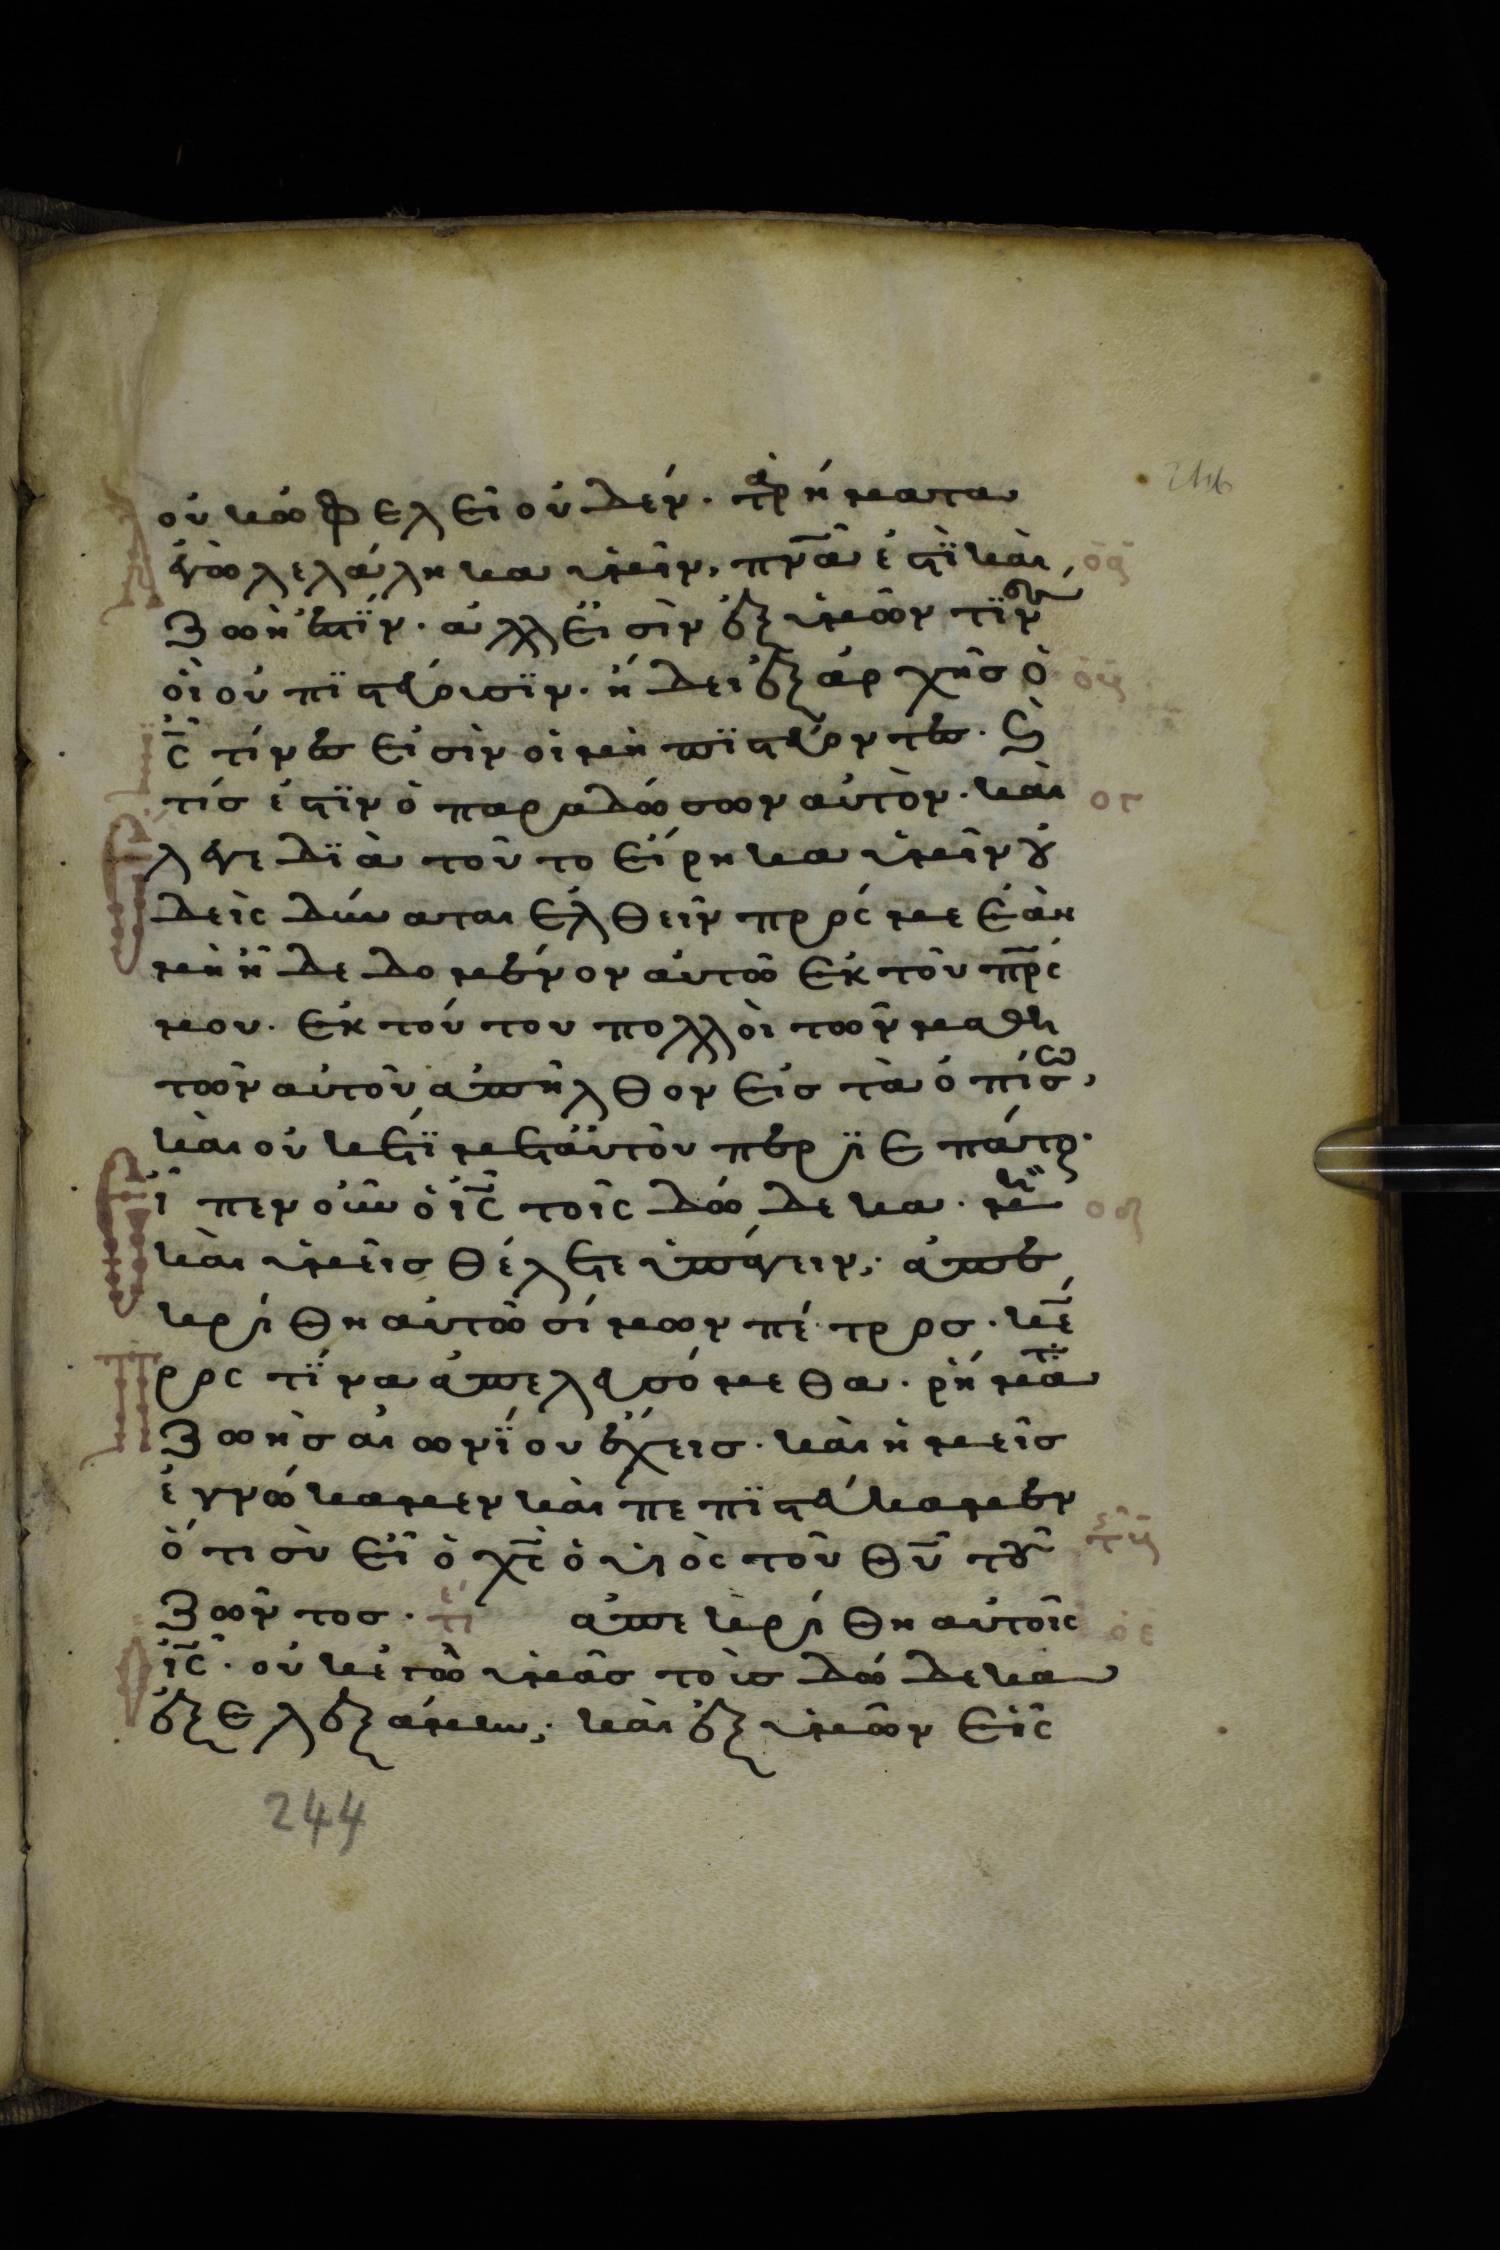 οὐκ ὠφελεῖ οὐδέν· τὰ ῥήματα
ἐγὼ λελάληκα ὑμῖν, πν̅ά ἐστϊ καὶ
ζωὴ ἐστϊν· ἀλλ εἰσὶν ἐξ ὑμῶν τϊνὲς
οἳ οὐ πϊστεύουσϊν· ἤδει ἐξ ἀρχῆς ὁ
ι̅ς̅ τίνες εἰσὶν οἱ μὴ πϊστεύοντες· Καὶ
τίς ἐστϊν ὁ παραδώσων αὐτὸν· καὶ
ἔλεγε δϊὰ τοῦτο εἴρηκα ὑμῖν οὐ
δεὶς δύναται ἐλθεῖν πρός με ἐὰν
μὴ ἦ δεδομένον αὐτῶ ἐκ τοῦ π̅ρ̅ς
μου· Ἐκ τούτου πολλοὶ τῶν μαθη
τῶν αὐτοῦ ἀπῆλθον εἰς τὰ ὀπίσω,
καὶ οὐκετϊ μετ αὐτοῦ περιεπάτουν·
Εἶπεν οὖν ὁ ι̅ς̅ τοῖς δώδεκα· μὴ
καὶ ὑμεῖς θέλετε ὑπάγειν; ἀπε
κρίθη αὐτῶ σίμων πέτρος· κ̅ε̅
Πρὸς τϊνα ἀπελευσόμεθα· ῥήματα
ζωῆς αἰωνϊου ἔχεις· καὶ ἡμεῖς
ἐγνώκαμεν καὶ πεπϊστεύκαμεν
ὅτι σὺ εἶ ὁ χ̅ς̅ ὁ υἱὸς τοῦ θ̅υ̅ τοῦ
ζῶντος· ἀπεκρίθη αὐτοῖς
ὁ ι̅ς̅· οὐκ ἐγὼ ὑμᾶς τοὺς δώδεκα
ἐξελεξάμην; καὶ ἐξ ὑμῶν εἷς
244